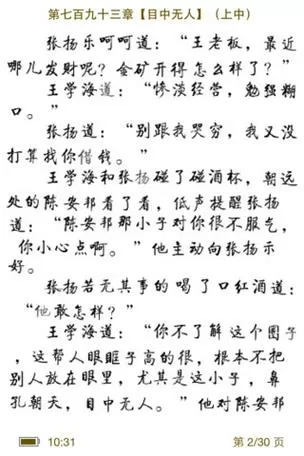 第七百九十三章【目中无人】（上中）
张扬乐呵呵道：“王老板，最近
哪儿发财呢？金矿开得怎么样了？”
王学海道：“惨淡经营，勉强糊
口。”
张扬道：“别跟我哭穷，我又没
打算找你借钱。”
王学海和张扬碰了碰酒杯，朝远
处的陈安邦看了看，低声提醒张扬
道：“陈安邦那小子对你很不服气，
你小心点啊。”他主动向张扬示
好。
张扬若无其事的喝了口红酒道：
“他敢怎样？”
王学海道：“你不了解这个圈子
，这帮人眼眶子高的很，根本不把
别人放在眼里，尤其是这小子，鼻
孔朝天，目中无人。”他对陈安邦
10:31
第 2/30 页